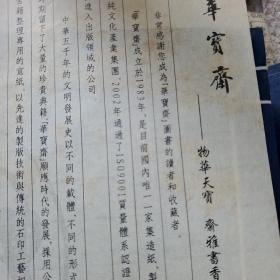 華寶齋
物華天寶 齋雅書香
非常感謝您成為「華寶齋」圖書的讀者和收藏者。
「華寶齋」成立於1983年，是目前國內唯一一家集造紙、製
純文化產業集團，2002年通過了ISO9001質量體系認證
進入出版領域的公司
中華五千年的文明發展史以不同的載體、不同的形式
時期留下了大量的珍貴典籍「華寶齋」順應時代的發展，採用公
古籍整理專用的宣紙，以先進的製版技術與傳統的石印工藝相